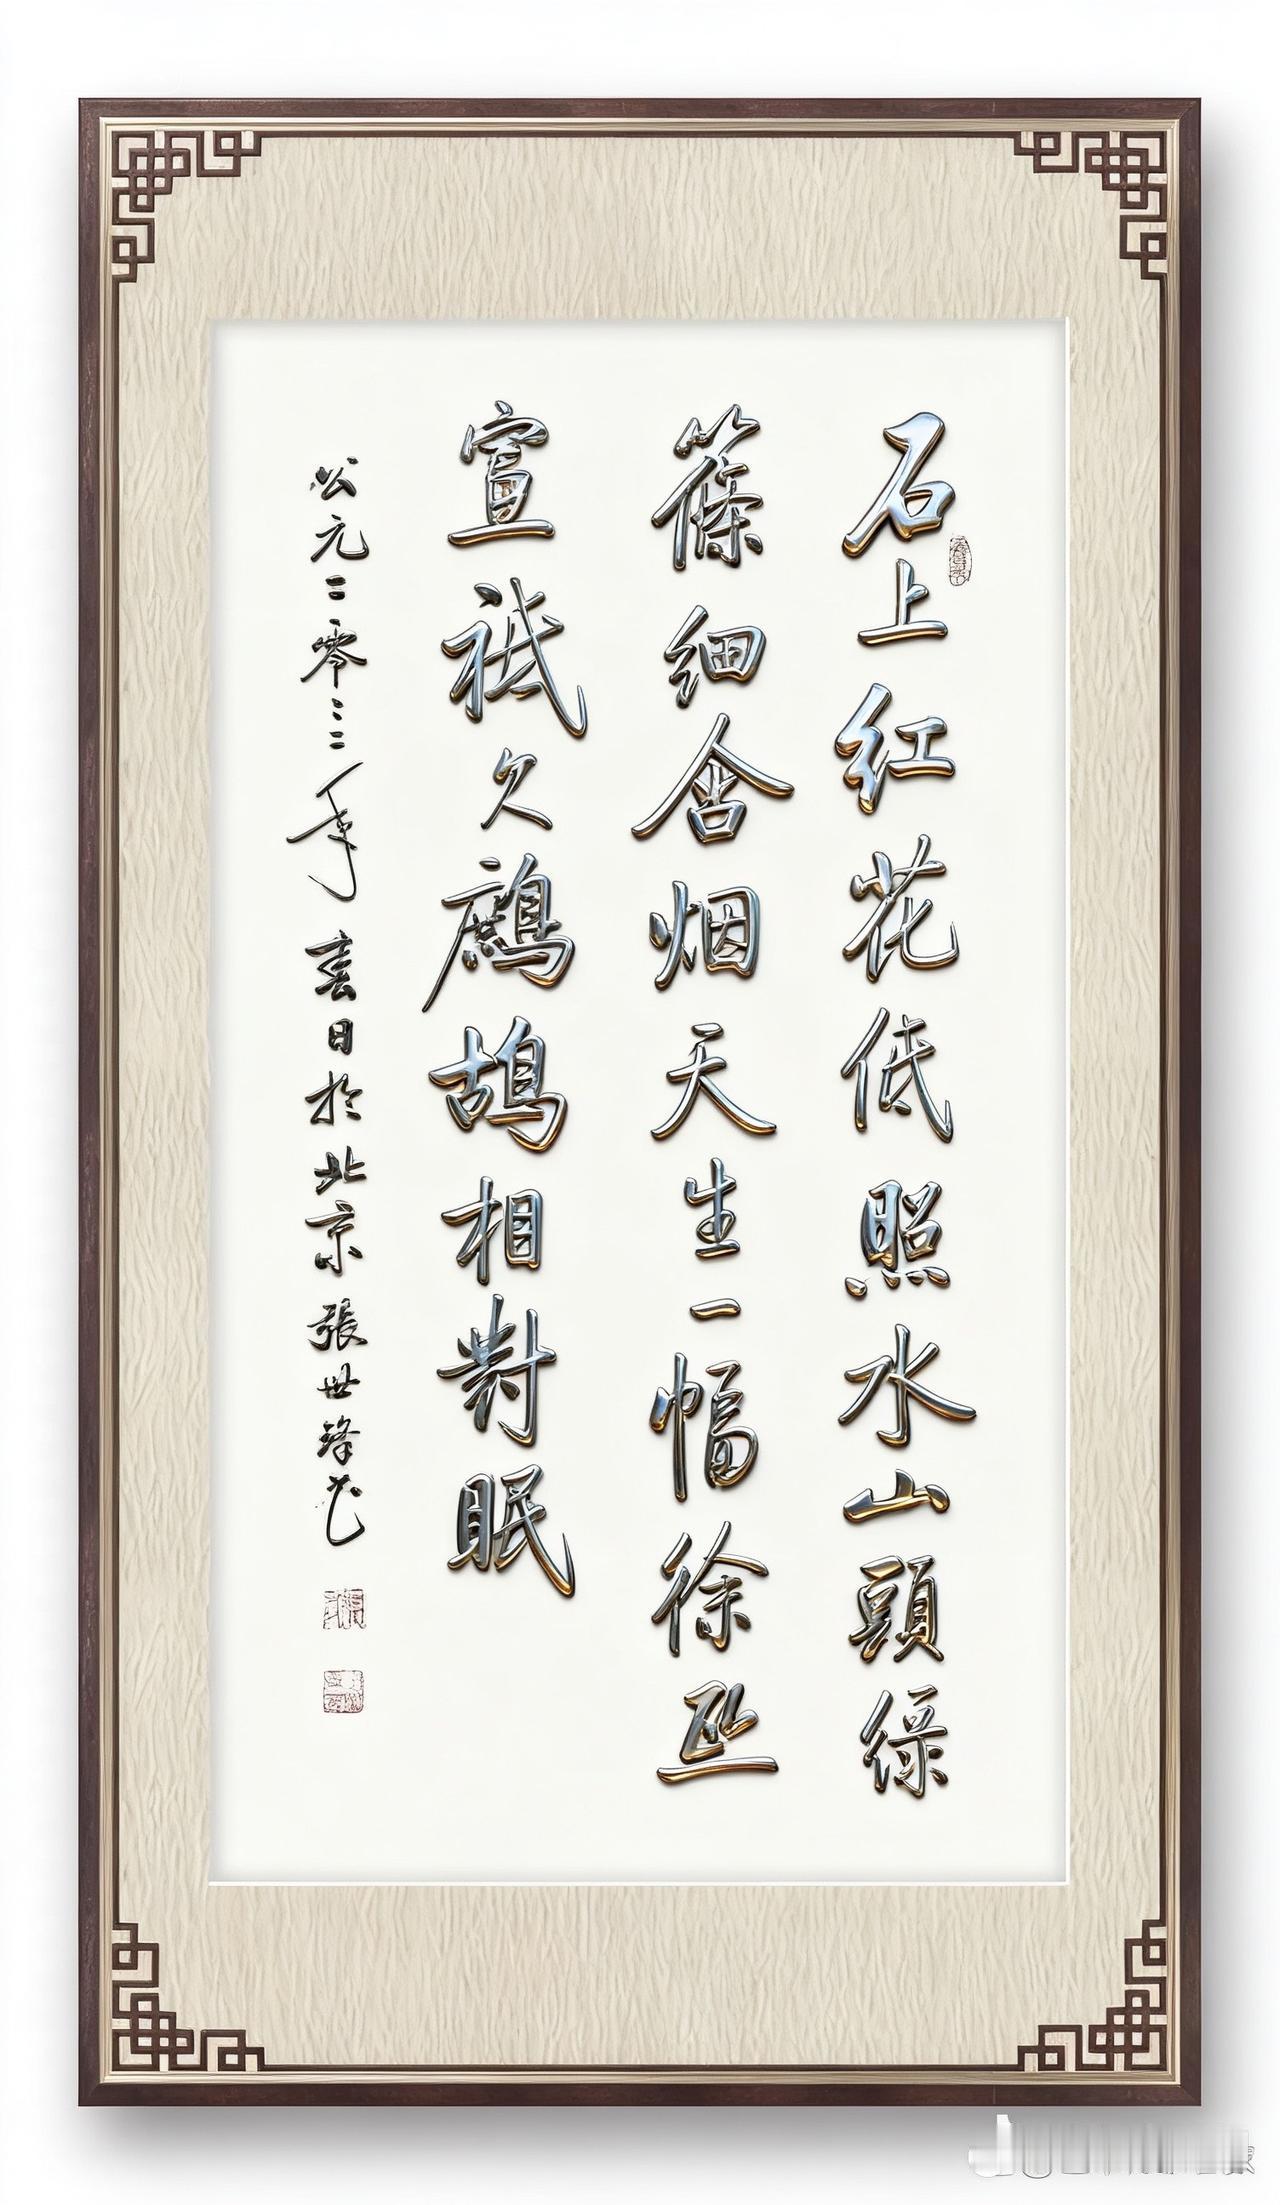 石上红花低照水山頭绿
篠细含烟天生一幅徐熙
宣祇欠鹧鸪相對眠
公元二零二三年春日於北京張世鋒书